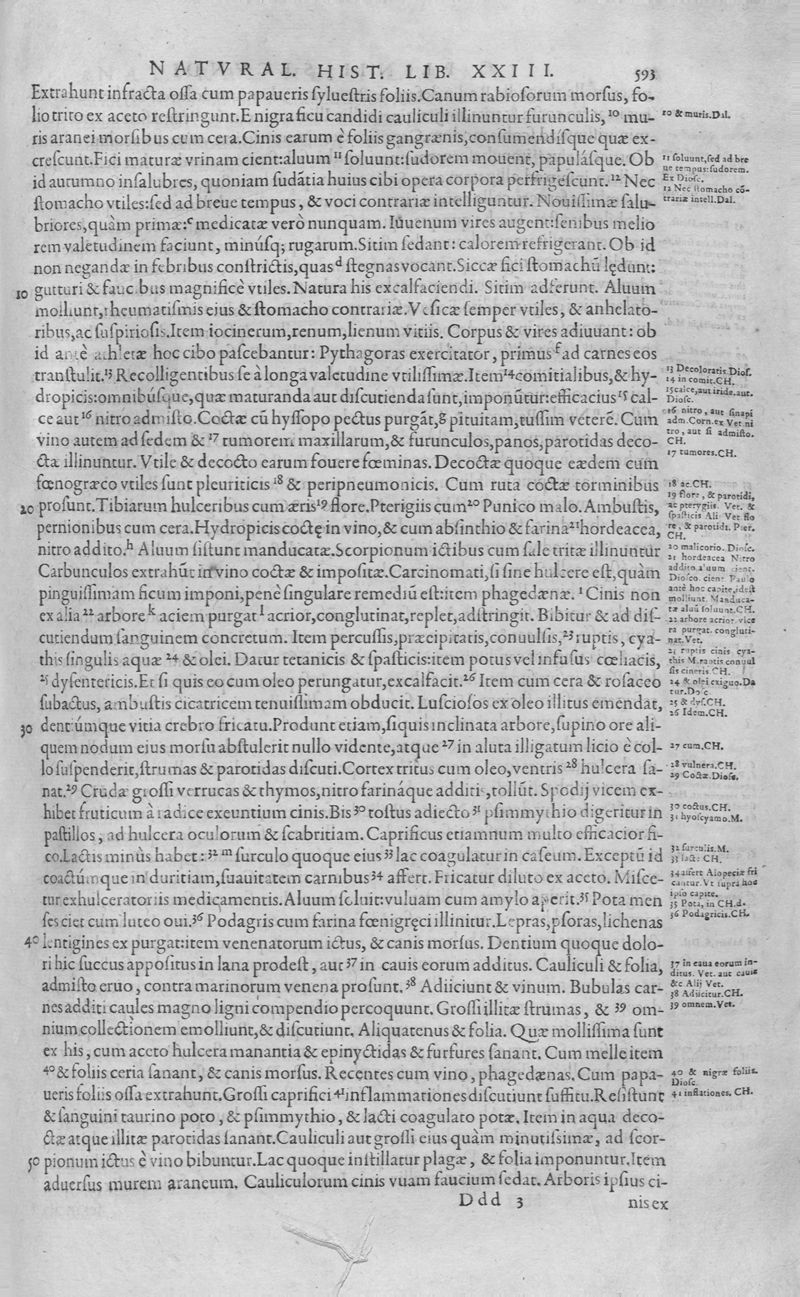 NATVRAL. HIST. LIB. XXIII. 593
Extrahunt infracta oſſa cum papaueris ſylueſtris foliis.Canum rabioſorum morſus, fo-
lio trito ex aceto reſtringunt.E nigra ficu candidi cauliculi illinuntur furunculis,¹⁰ mu-
ris aranei morſibus cum cera.Cinis earum è foliis gangrænis,conſumendiſque quæ ex-
creſcunt.Fici maturæ vrinam cient:aluum ¹¹ ſoluunt:ſudorem mouent, papuláſque. Ob
id autumno inſalubres, quoniam ſudātia huius cibi opera corpora perfrigeſcunt.¹² Nec
ſtomacho vtiles:ſed ad breue tempus, & voci contrariæ intelliguntur. Nouiſſimæ ſalu-
briores,quàm primæ:ᶜ medicatæ verò nunquam. Iuuenum vires augent:ſenibus melio
rem valetudinem faciunt, minúſq; rugarum.Sitim ſedant: calorem refrigerant. Ob id
non negandæ in febribus conſtrictis,quas ᵈ ſtegnas vocant.Siccæ fici ſtomachū lędunt:
10 gutturi & faucibus magnificè vtiles. Natura his excalfaciendi. Sitim adferunt. Aluum
molliunt,rheumatiſmis eius & ſtomacho contrariæ.Veſicæ ſemper vtiles, & anhelato-
ribus,ac ſuſpirioſis.Item iocinerum,renum,lienum vitiis. Corpus & vires adiuuant: ob
id antè athletæ hoc cibo paſcebantur: Pythagoras exercitator, primus ᶠ ad carnes eos
tranſtulit.¹³ Recolligentibus ſe à longa valetudine vtiliſſimæ.Item ¹⁴ comitialibus,& hy-
dropicis:omnibúſque,quæ maturanda aut diſcutienda ſunt,imponūtur:efficacius ¹⁵ cal-
ce aut ¹⁶ nitro admiſto.Coctæ cū hyſſopo pectus purgāt,ᵍ pituitam,tuſſim veterē. Cum
vino autem ad ſedem & ¹⁷ tumorem maxillarum,& furunculos,panos,parotidas deco-
cta illinuntur. Vtile & decocto earum fouere fœminas. Decoctæ quoque eædem cum
fœnogræco vtiles ſunt pleuriticis ¹⁸ & peripneumonicis. Cum ruta coctæ torminibus
20 proſunt.Tibiarum hulceribus cum æris ¹⁹ flore.Pterigiis cum ²⁰ Punico malo. Ambuſtis,
pernionibus cum cera.Hydropicis coctę in vino,& cum abſinthio & farina ²¹ hordeacea,
nitro addito.ʰ Aluum ſiſtunt manducatæ.Scorpionum ictibus cum ſale tritæ illinuntur
Carbunculos extrahūt in vino coctæ & impoſitæ.Carcinomati,ſi ſine hulcere eſt,quàm
pinguiſſimam ficum imponi,penè ſingulare remediū eſt:item phagedænæ. ⁱ Cinis non
ex alia ²² arbore ᵏ aciem purgat ˡ acrior,conglutinat,replet,adſtringit. Bibitur & ad diſ-
cutiendum ſanguinem concretum. Item percuſſis,præcipitatis,conuulſis,²³ ruptis, cya-
this ſingulis aquæ ²⁴ & olei. Datur tetanicis & ſpaſticis:item potus vel infuſus cœliacis,
²⁵ dyſentericis.Et ſi quis eo cum oleo perungatur,excalfacit.²⁶ Item cum cera & roſaceo
ſubactus, ambuſtis cicatricem tenuiſſimam obducit. Luſcioſos ex oleo illitus emendat,
30 dentiúmque vitia crebro fricatu.Produnt etiam,ſiquis inclinata arbore,ſupino ore ali-
quem nodum eius morſu abſtulerit nullo vidente,atque ²⁷ in aluta illigatum licio è col-
lo ſuſpenderit,ſtrumas & parotidas diſcuti.Cortex tritus cum oleo,ventris ²⁸ hulcera ſa-
nat.²⁹ Cruda groſſi verrucas & thymos,nitro farináque additis,tollūt. Spodij vicem ex-
hibet fruticum à radice exeuntium cinis.Bis ³⁰ toſtus adiecto ³¹ pſimmythio digeritur in
paſtillos, ad hulcera oculorum & ſcabritiam. Caprificus etiamnum multo efficacior fi-
co.Lactis minùs habet:³² ᵐ ſurculo quoque eius ³³ lac coagulatur in caſeum.Exceptū id
coactúmque in duritiam,ſuauitatem carnibus ³⁴ affert. Fricatur diluto ex aceto. Miſce-
tur exhulceratoriis medicamentis.Aluum ſoluit:vuluam cum amylo aperit.³⁵ Pota men
ſes ciet cum luteo oui.³⁶ Podagris cum farina fœnigręci illinitur.Lepras,pſoras,lichenas
40 lentigines expurgat:item venenatorum ictus, & canis morſus. Dentium quoque dolo-
ri hic ſuccus appoſitus in lana prodeſt, aut ³⁷ in cauis eorum additus. Cauliculi & folia,
admiſto eruo, contra marinorum venena proſunt.³⁸ Adiiciunt & vinum. Bubulas car-
nes additi caules magno ligni compendio percoquunt. Groſſi illitæ ſtrumas, & ³⁹ om-
nium collectionem emolliunt,& diſcutiunt. Aliquatenus & folia. Quæ molliſſima ſunt
ex his, cum aceto hulcera manantia & epinyctidas & furfures ſanant. Cum melle item
⁴⁰ & foliis ceria ſanant, & canis morſus. Recentes cum vino, phagedænas. Cum papa-
ueris foliis oſſa extrahunt.Groſſi caprifici ⁴¹ inflammationes diſcutiunt ſuffitu.Reſiſtunt
& ſanguini taurino poto, & pſimmythio, & lacti coagulato potæ. Item in aqua deco-
ctæ atque illitæ parotidas ſanant.Cauliculi aut groſſi eius quàm minutiſsimæ, ad ſcor-
50 pionum ictus è vino bibuntur.Lac quoque inſtillatur plagæ, & folia imponuntur.Item
aduerſus murem araneum. Cauliculorum cinis vuam faucium ſedat. Arboris ipſius ci-
Ddd 3 nis ex
10 & muris.Dal.
11 ſoluunt,ſed ad bre
ue tempus:ſudorem.
Ex Dioſc.
12 Nec ſtomacho cō-
trariæ intell.Dal.
13 Decoloratis.Dioſ.
14 in comit.CH.
15 calce,aut iride.aut.
Dioſc.
16 nitro, aut ſinapi
adm.Corn.ex Vet.ni
tro, aut ſi admiſto.
CH.
17 tumores.CH.
18 ac.CH.
19 flore, & parotidi,
ac pterygiis. Vet. &
ſpaſticis Ali. Vet flo
re, & parotidi. Pter.
CH.
20 malicorio. Dioſc.
21 hordeacea Nitro
addito aluum cient.
Dioſco. cient Paulo
antè hoc capite,ideſt
molliunt. Manduca-
tæ aluū ſoluunt.CH.
22 arbore acrior vice
ra purgat. congluti-
nat.Vet.
23 ruptis cinis cya-
this M.raptis conuul
ſis cineris.CH.
24 & olei exiguo.Da
tur.Dioſc
25 & dyſ.CH.
26 Idem.CH.
27 cum.CH.
28 vulnera.CH.
29 Coctæ.Dioſc.
30 coctus.CH.
31 hyoſcyamo.M.
32 ſurculis.M.
33 lact: CH.
34 aifert Alopeciæ fri
cantur.Vt ſupra hoc
ipſo capite.
35 Pota, in CH.d.
36 Podagricis.CH.
37 in caua eorum in-
ditus. Vet. aut cauis
&c Alij Vet.
38 Adiicitur.CH.
39 omnem.Vet.
40 & nigræ foliis.
Dioſc.
41 inflationes. CH.